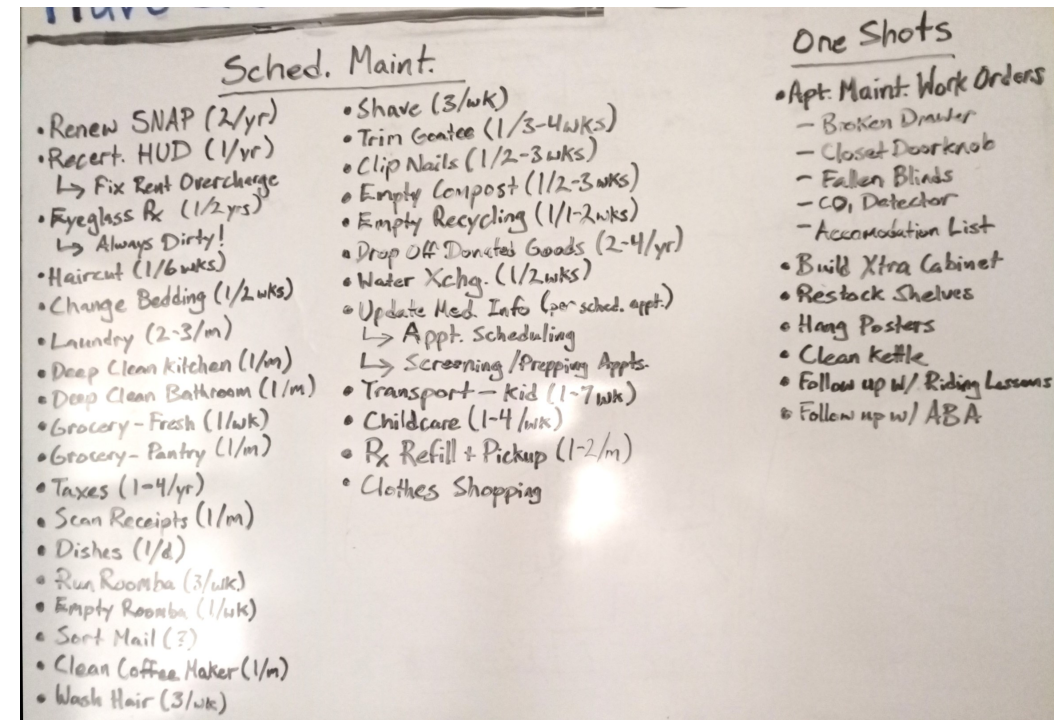 Sched. Maint.
• Renew SNAP (2/yr)
• Recert. HUD (1/yr)
↳ Fix Rent Overcharge
• Eyeglass Rx (1/2yrs)
↳ Always Dirty!
• Haircut (1/6wks)
• Change Bedding (1/2wks)
• Laundry (2-3/m)
• Deep Clean Kitchen (1/m)
• Deep Clean Bathroom (1/m)
• Grocery - Fresh (1/wk)
• Grocery - Pantry (1/m)
• Taxes (1-4/yr)
• Scan Receipts (1/m)
• Dishes (1/d)
• Run Roomba (3/wk)
• Empty Roomba (1/wk)
• Sort Mail (?)
• Clean Coffee Maker (1/m)
• Wash Hair (3/wk)
• Shave (3/wk)
• Trim Goatee (1/3-4wks)
• Clip Nails (1/2-3wks)
• Empty Compost (1/2-3wks)
• Empty Recycling (1/1-2wks)
• Drop Off Donated Goods (2-4/yr)
• Water Xchg. (1/2wks)
• Update Med. Info (per sched. appt.)
↳ Appt. Scheduling
↳ Screening/Prepping Appts.
• Transport - Kid (1-7/wk)
• Childcare (1-4/wk)
• Rx Refill + Pickup (1-2/m)
• Clothes Shopping
One Shots
• Apt. Maint. Work Orders
- Broken Drawer
- Closet Doorknob
- Fallen Blinds
- CO, Detector
- Accomodation List
• Build Xtra Cabinet
• Restock Shelves
• Hang Posters
• Clean Kettle
• Follow up w/ Riding Lessons
• Follow up w/ ABA